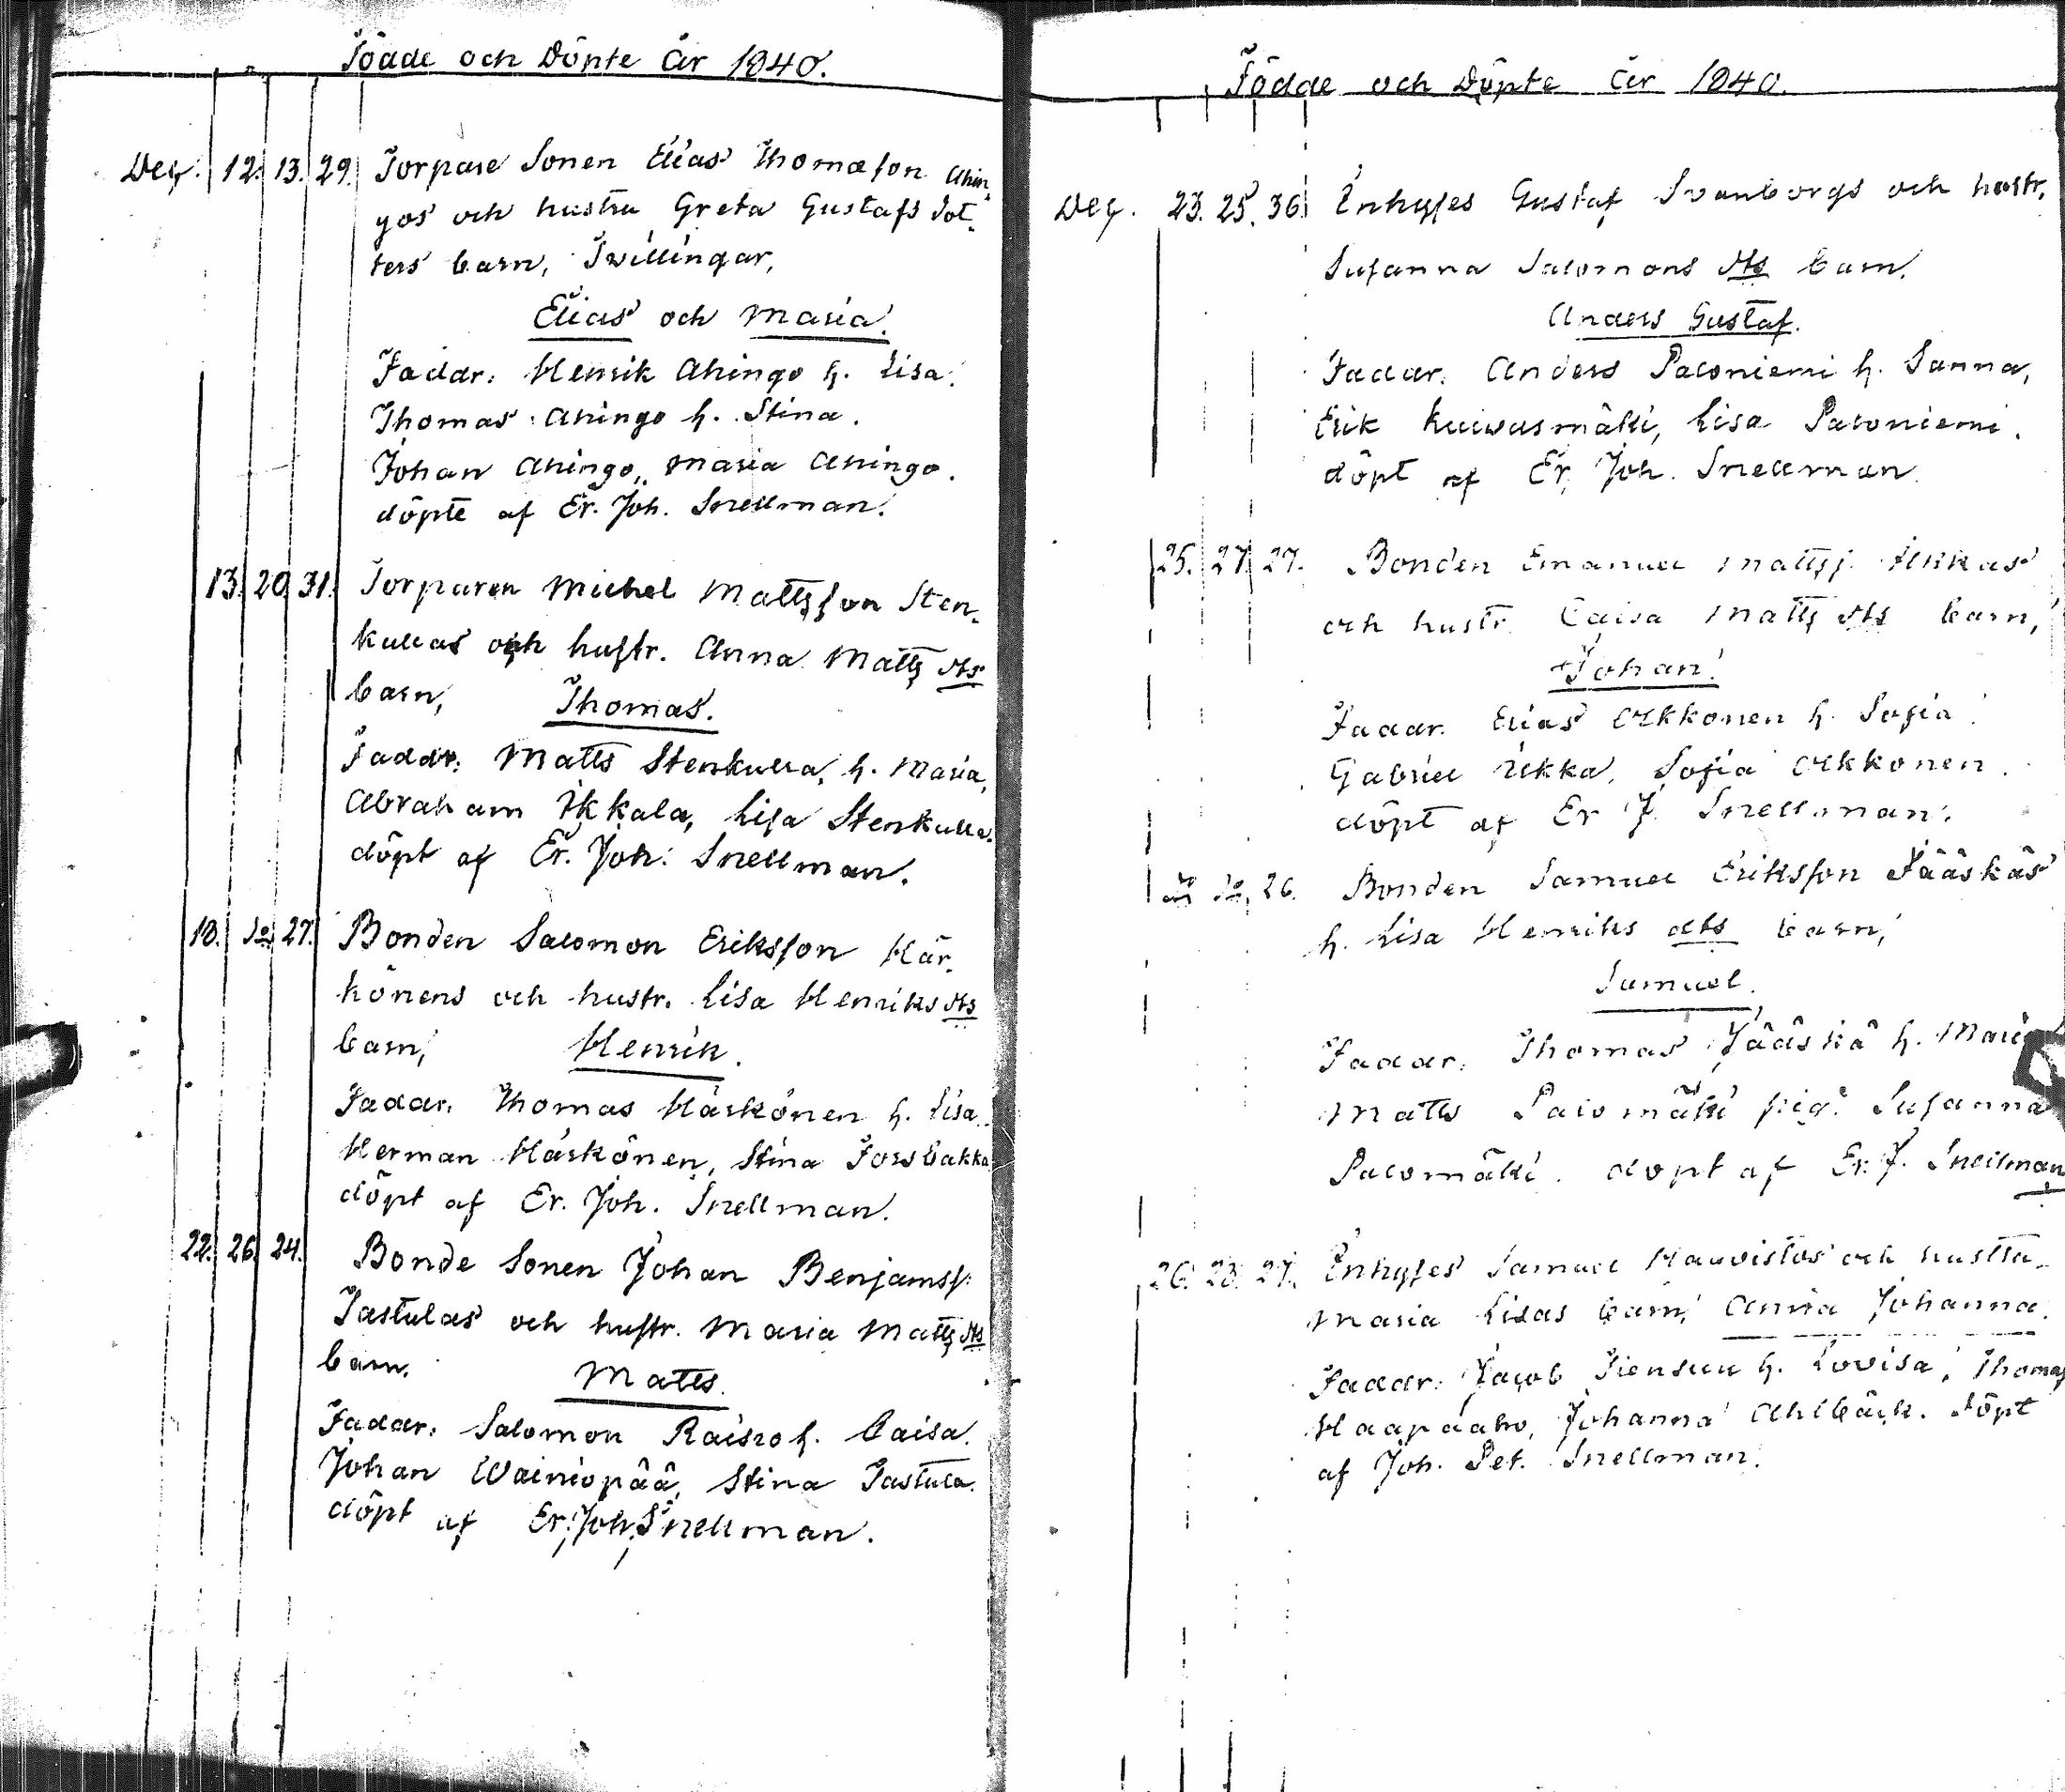 Födde och Döpte År 1840.
Dec. 12. 13. 29. Torpare Sonen Elias Thomæson Ahin-
gos och hustru Greta Gustafs Dot-
ters barn, Tvillingar,
Elias och Maria.
Faddr: Henrik Ahingo h. Lisa.
Thomas Ahingo h. Stina.
Johan Ahingo, Maria Ahingo.
döpte af Er. Joh. Snellman.
13. 20. 31. Torparen Michel Mattsson Sten-
kullas och hustr. Anna Matts dtrs
barn, Thomas.
Faddr: Matts Stenkulla, h. Maria,
Abraham Ikkala, Lisa Stenkulla.
döpt af Er. Joh. Snellman.
18. do 27. Bonden Salomon Eriksson Här-
könens och hustr. Lisa Henriks dtrs
barn, Henrik.
Faddr. Thomas Härkönen h. Lisa.
Herman Härkönen, Stina Forsbakka
döpt af Er. Joh. Snellman.
22. 26. 24. Bonde Sonen Johan Benjamss.
Tastulas och hustr. Maria Matts dtrs
barn. Matts.
Faddr. Salomon Raisio h. Caisa.
Johan Wainiopää, Stina Tastula.
döpt af Er. Joh. Snellman.
Födde och Döpte År 1840.
Dec. 23. 25. 36. Enhyses Gustaf Svanborgs och hustr.
Susanna Salomons dtrs barn.
Anders Gustaf.
Faddr. Anders Paloniemi h. Sanna,
Erik Kuivasmäki, Lisa Paloniemi.
döpt af Er. Joh. Snellman.
25. 27. 27. Bonden Emanuel Mattss. Ukkas
och hustr. Caisa Matts dtrs barn,
Johan.
Faddr. Elias Ukkonen h. Sofia.
Gabriel Ukka, Sofia Ukkonen.
döpt af Er J. Snellman.
do do 26. Bonden Samuel Eriksson Jääskäs
h. Lisa Henriks dtrs barn,
Samuel.
Faddr. Thomas Jääskä h. Maria
Matts Palomäki pig. Susanna
Palomäki. döpt af Er. J. Snellman
26. 28. 27. Enhyses Samuel Hauvistos och hustru
Maria Lisas barn, Anna Johanna.
Faddr. Jacob Tiensuu h. Lovisa, Thomas
Haapaaho, Johanna Ahlbäck. döpt
af Joh. Pet. Snellman.